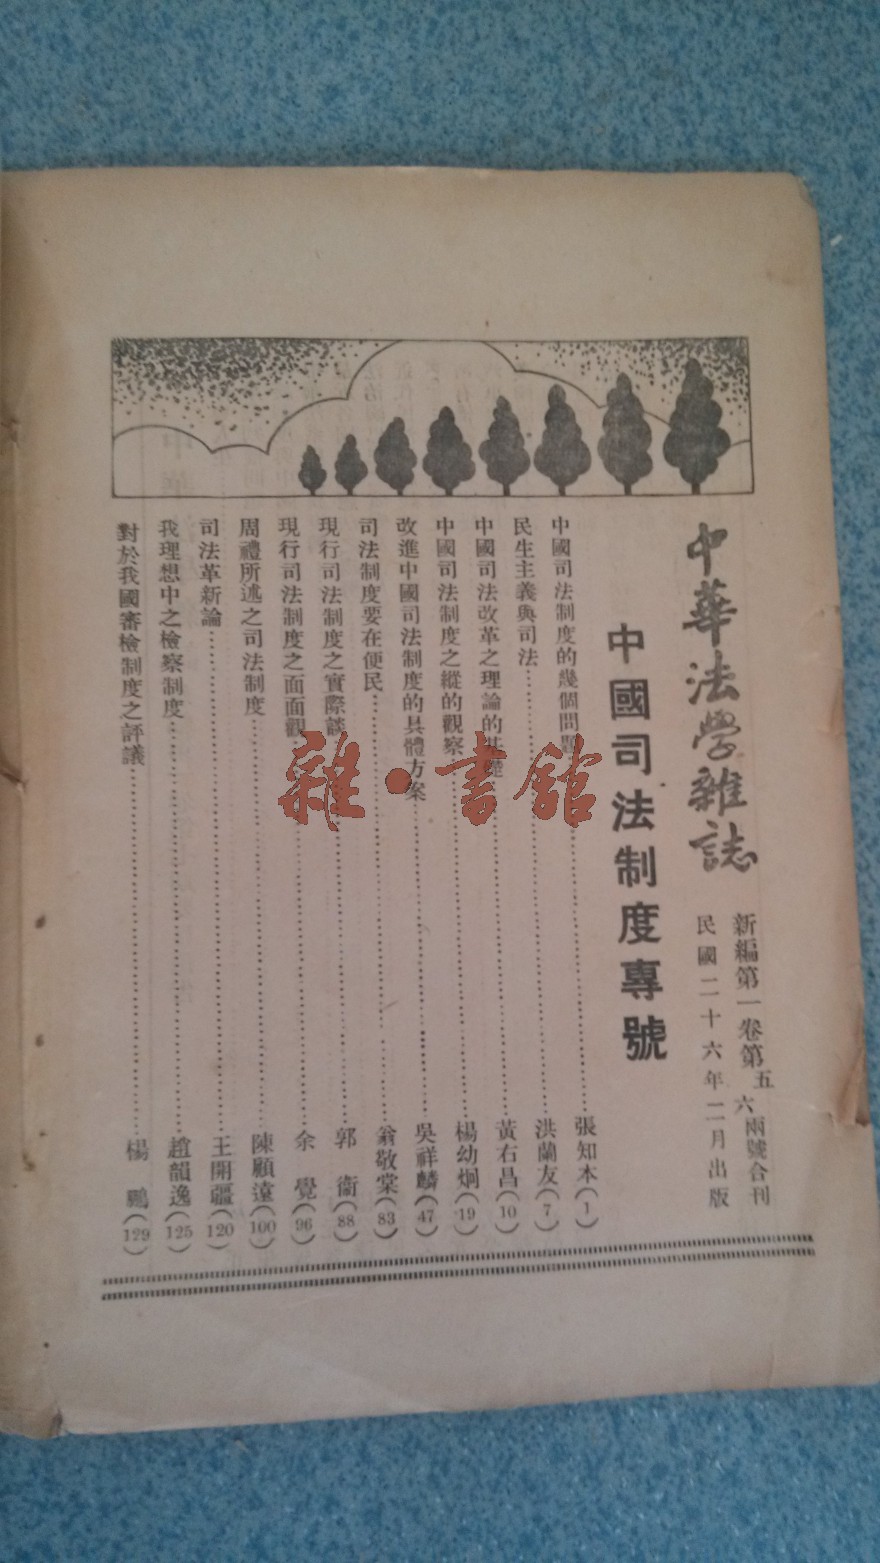 中華法學雜誌
新編第一卷第五六兩號合刊
民國二十六年二月出版
中國司法制度專號
中國司法制度的幾個問題……張知本(1)
民生主義與司法……洪蘭友(7)
中國司法改革之理論的基礎……黃右昌(10)
中國司法制度之縱的觀察……楊幼炯(19)
改進中國司法制度的具體方案……吳祥麟(47)
司法制度要在便民……翁敬棠(83)
現行司法制度之實際談……郭衞(88)
現行司法制度之面面觀……余覺(96)
周禮所述之司法制度……陳顧遠(100)
司法革新論……王開疆(120)
我理想中之檢察制度……趙韻逸(125)
對於我國審檢制度之評議……楊鵬(129)
雜·書館